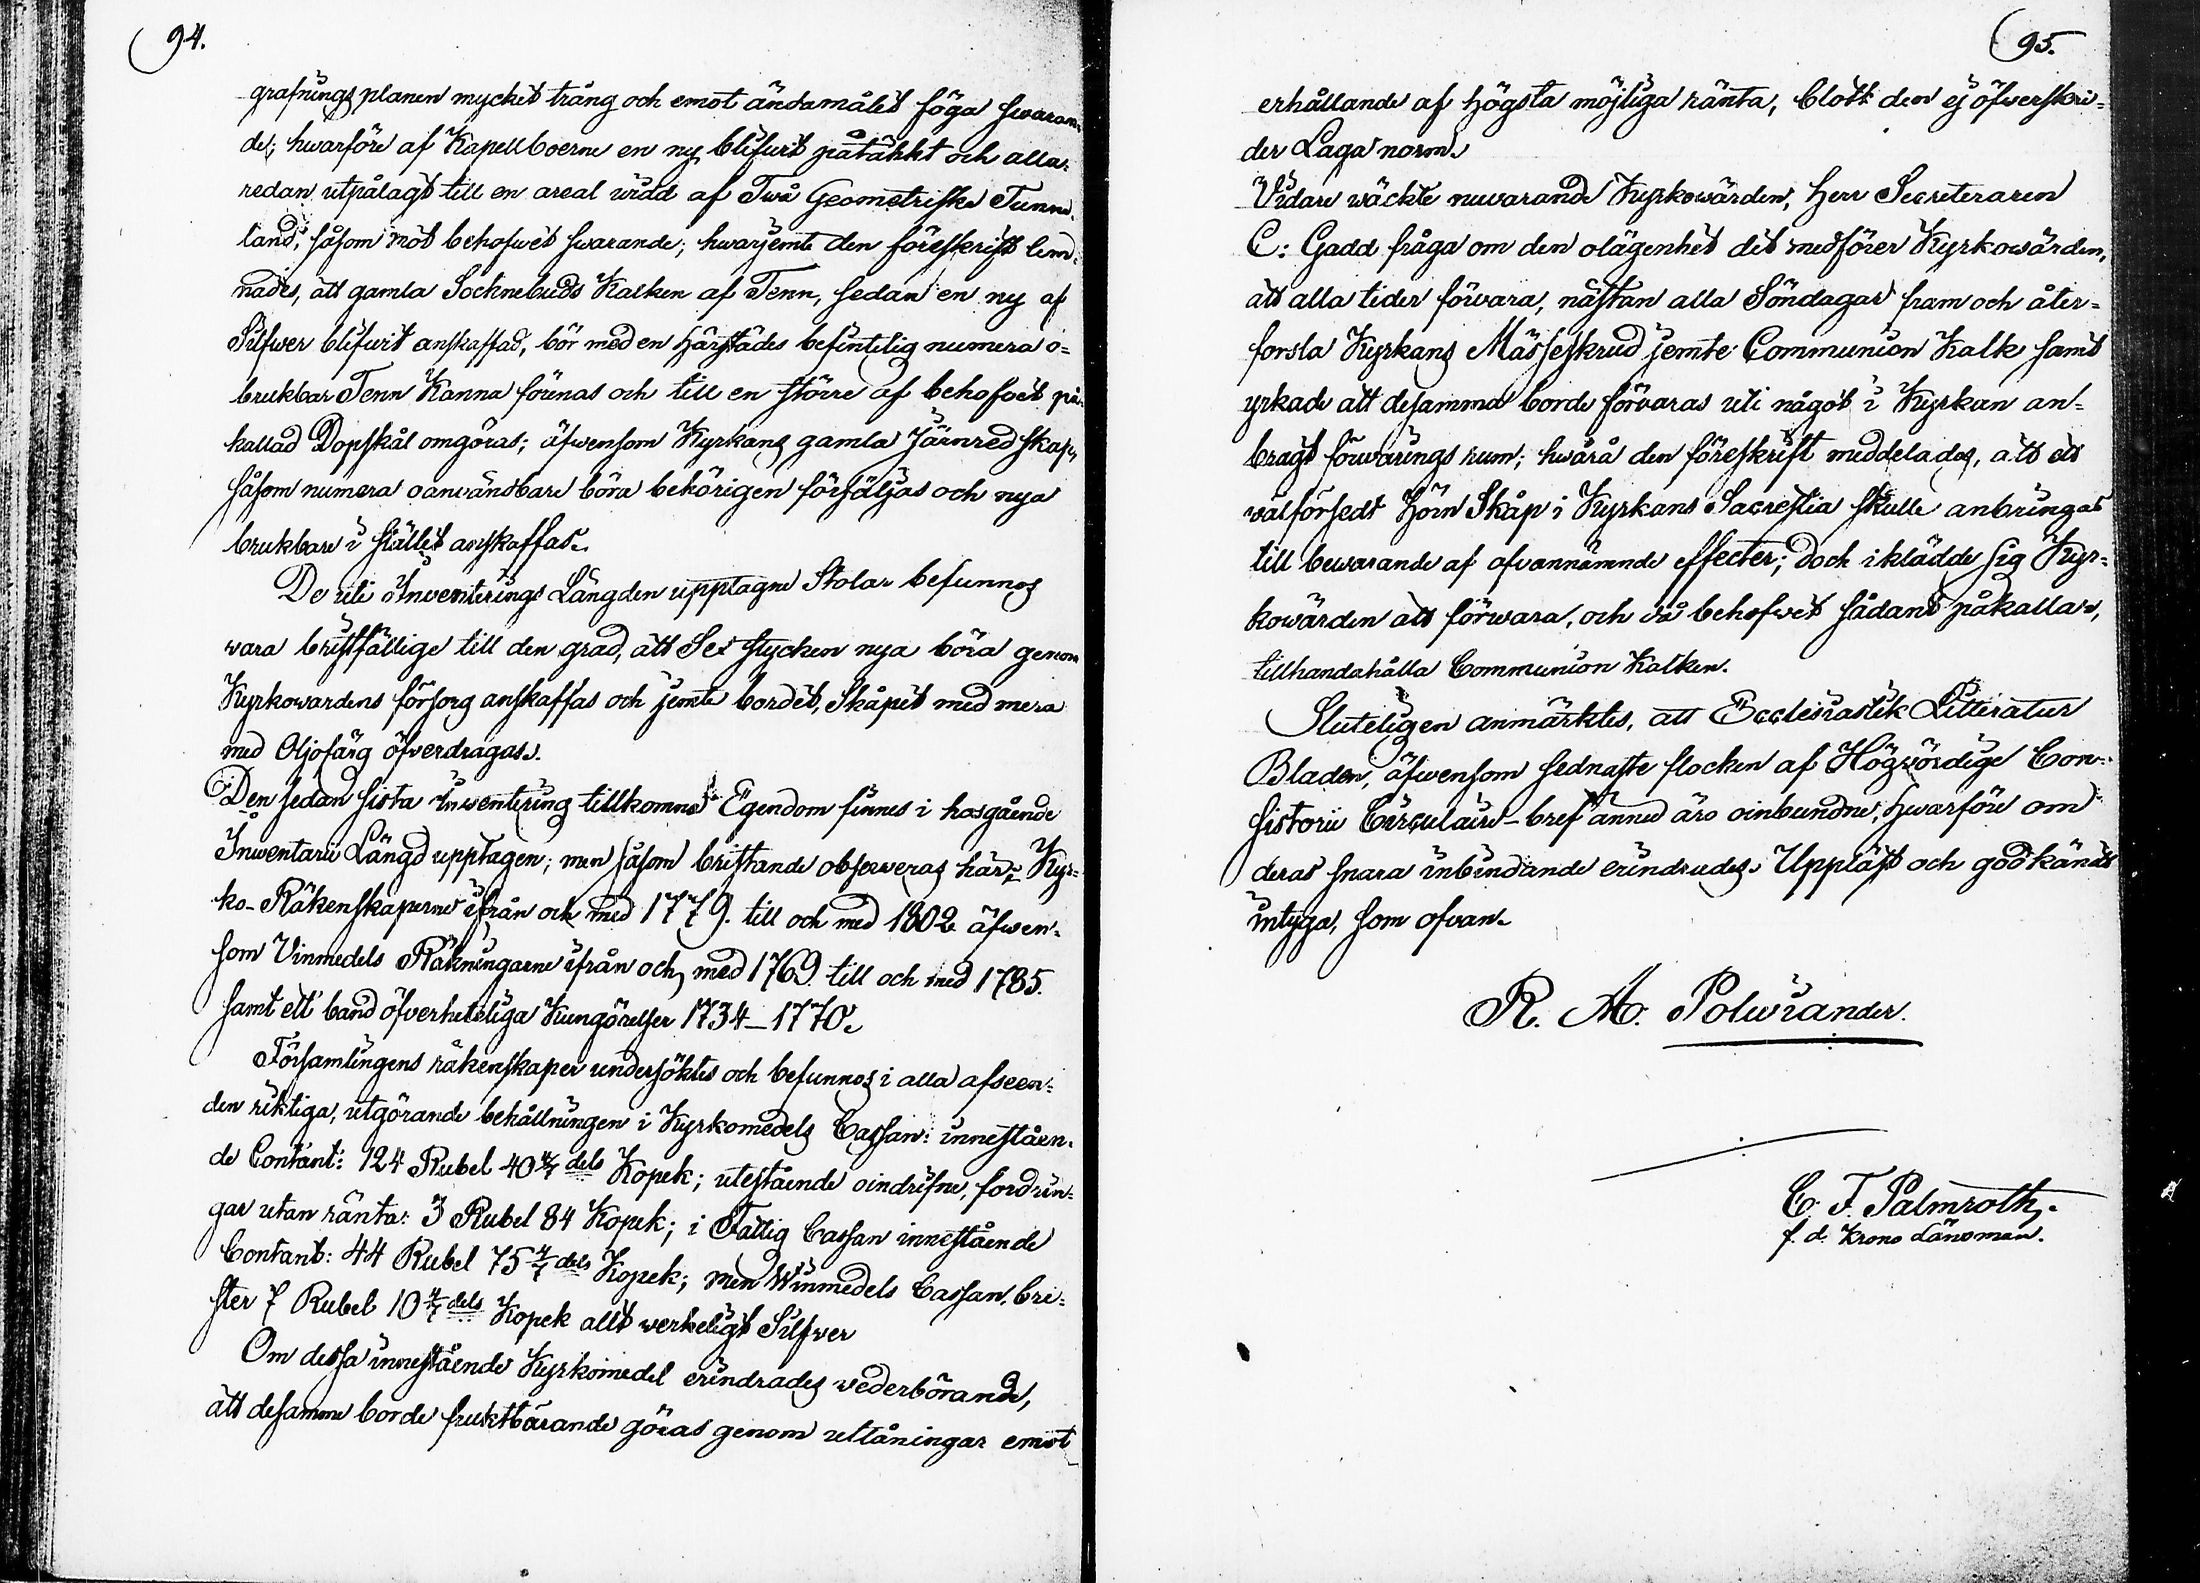 94.
grafnings planen mycket trång och emot ändamålet föga swaran-
de; hwarföre af Kapellboerne en ny blifwit påtänkt och alla-
redan utpålagt till en areal widd af Twå Geometriska Tunne-
land, såsom mot behofwet swarande; hwarjemte den föreskrift lem-
nades, att gamla Socknebuds Kalken af Tenn, sedan en ny af
Silfwer blifwit anskaffad, bör med en härstädes befintelig numera o-
brukbar Tenn Kanna förenas och till en större af behofvet på-
kallad Dopskål omgöras; äfwensom Kyrkans gamla Järnredskap,
såsom numera oanvändbare böra behörigen försäljas och nya
brukbare i stället anskaffas.
De uti Inventerings Längden upptagne Stolar befunnos
wara bristfällige till den grad, att Sex stycken nya böra genom
Kyrkowardens försorg anskaffas och jemte bordet, Skåpet med mera
med Oljofärg öfverdragas.
Den sedan sista inwentering tillkomna Egendom finnes i hosgående
Inwentarii Längd upptagen; men såsom bristande observeras här: Kyr-
ko-Räkenskaperne ifrån och med 1779. till och med 1802 äfwen-
som Vinmedels Räkningarne ifrån och med 1769. till och med 1785.
samt ett band öfverheteliga Kungörelser 1734-1770.
Församlingens räkenskaper undersöktes och befunnos i alla afseen-
den riktiga, utgörande behållningen i Kyrkomedels Cassan: inneståen-
de Contant: 124 Rubel 40 4/7 dels Kopek; utestående oindrifne, fordrin-
gar utan ränta: 3 Rubel 84 Kopek; i Fattig Cassan innestående
Contant: 44 Rubel 75 4/7 dels Kopek; men Winmedels Cassan, bri-
ster 7 Rubel 10 4/7 dels Kopek allt werkeligt Silfwer
Om dessa innestående Kyrkomedel erindrades wederbörande,
att desamme borde fruktbärande göras genom utlåningar emot
95.
erhållande af högsta möjliga ränta, blott den ej öfwerskri-
der Laga norm.
Vidare wäckte nuvarande Kyrkowärden, Herr Secreteraren
C: Gadd fråga om den olägenhet det medförer Kyrkowärden,
att alla tider förvara, nästan alla Söndagar fram och åter-
forsla Kyrkans Mässeskrud jemte Communion Kalk samt
yrkade att desamma borde förvaras uti något i Kyrkan an-
bragt förwarings rum; hwarå den föreskrift meddelades, att ett
wälförsedt Hörn Skåp i Kyrkans Sacrestia skulle anbringas
till bewarande af ofvannämnde effecter; doch iklädde sig Kyr-
kowärden att förwara, och då behofwet sådant påkallar,
tillhandahålla Communion Kalken.
Sluteligen anmärktes, att Ecclesiastik Litteratur
Bladen, äfwensom sednaste flocken af Högwördige Con-
sistorii Circulaire-bref ännu äro oinbundne, hwarföre om
deras snara inbindande erindrades. Uppläst och godkändt
intyga, som ofvan.
R. M. Polwiander.
C. F. Palmroth,
f. d. Krono Länsman.